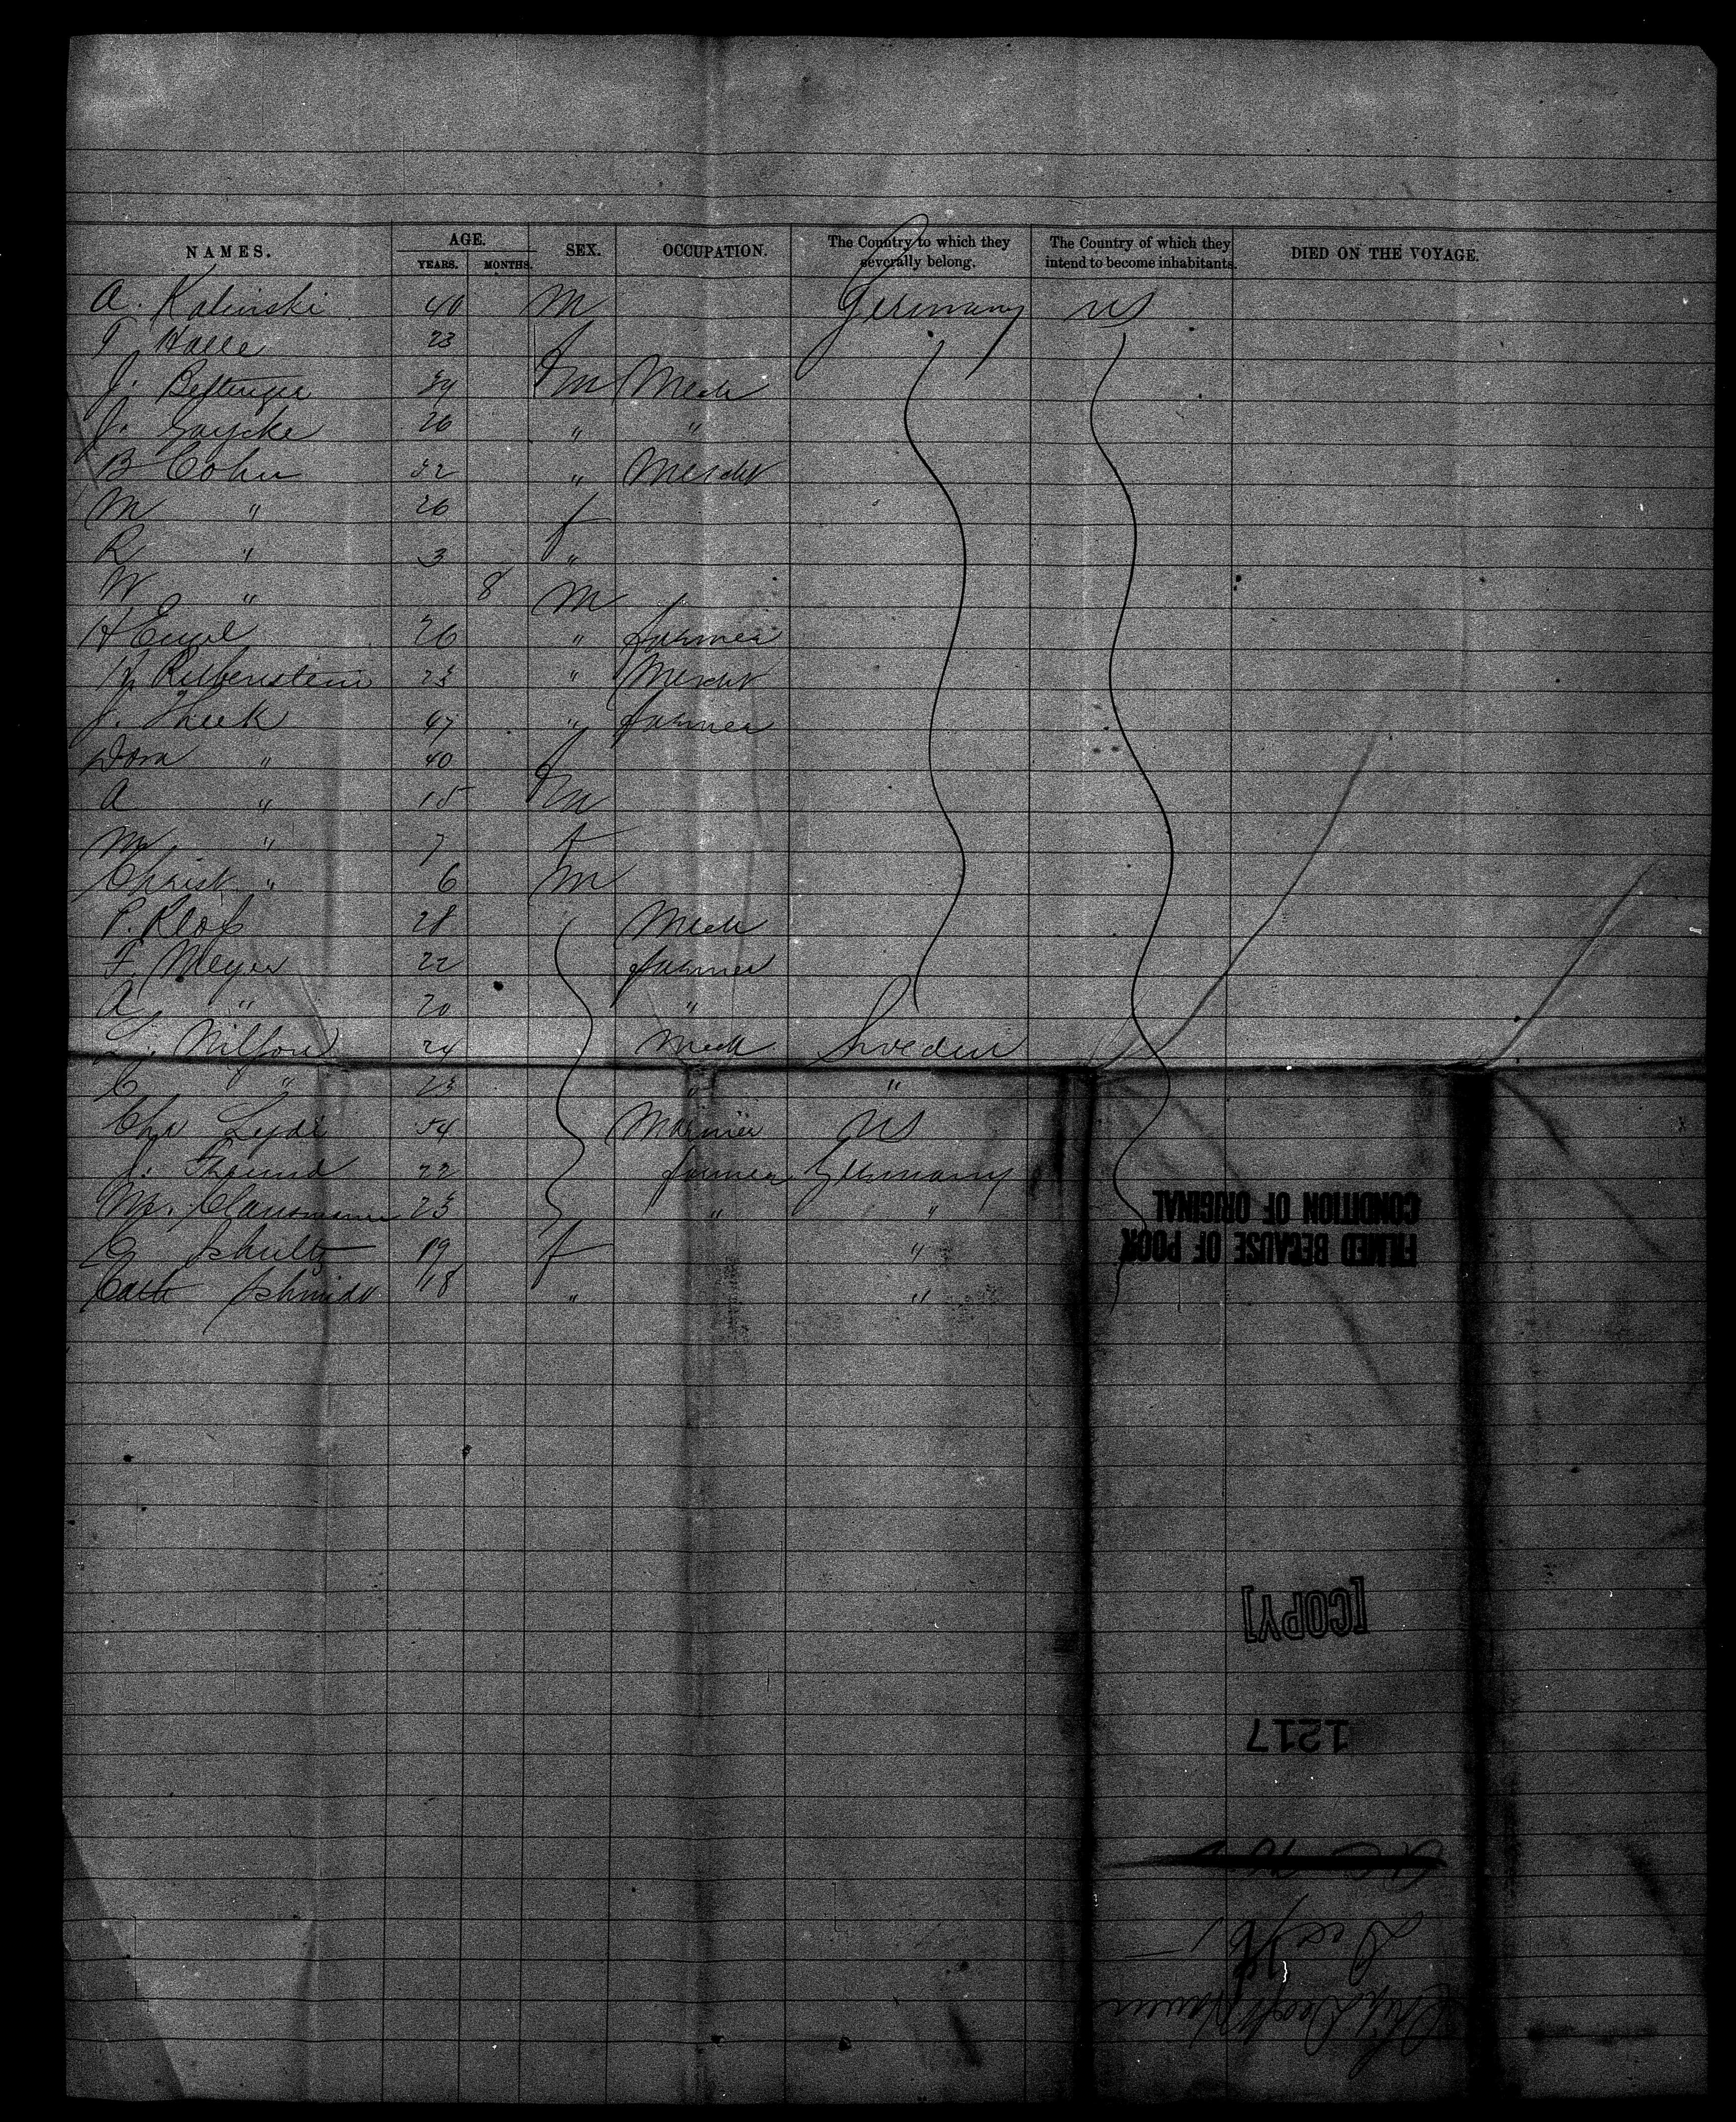 NAMES. AGE. SEX. OCCUPATION. The Country to which they severally belong. The Country of which they intend to become inhabitants. DIED ON THE VOYAGE.
YEARS. MONTHS.
A. Kalinski 40 M Germany US
T Halle 23 f
J. 34 m Mech
J. Gaycke 26 " "
B Cohn 32 " Mercht
M " 26 f
R " 3 "
W " 8 M
H Engel 26 " farmer
H. Rubenstein 23 " Mercht
J. Theek 47 " farmer
Dora " 40 f
A " 15 m
M " 7 f
Christ " 6 m
P. Klop 28 Mech
F. Meyer 22 farmer
A " 20 "
Nilson 24 Mech Sweden
C " 23 " "
Chr 54 Mariner US
J. 22 farmer Germany
M. Clausmann 23 " "
C Schultz 19 f "
Cath Schmidt 18 " "
FILMED BECAUSE OF POOR
CONDITION OF ORIGINAL
[COPY]
1217
Ship